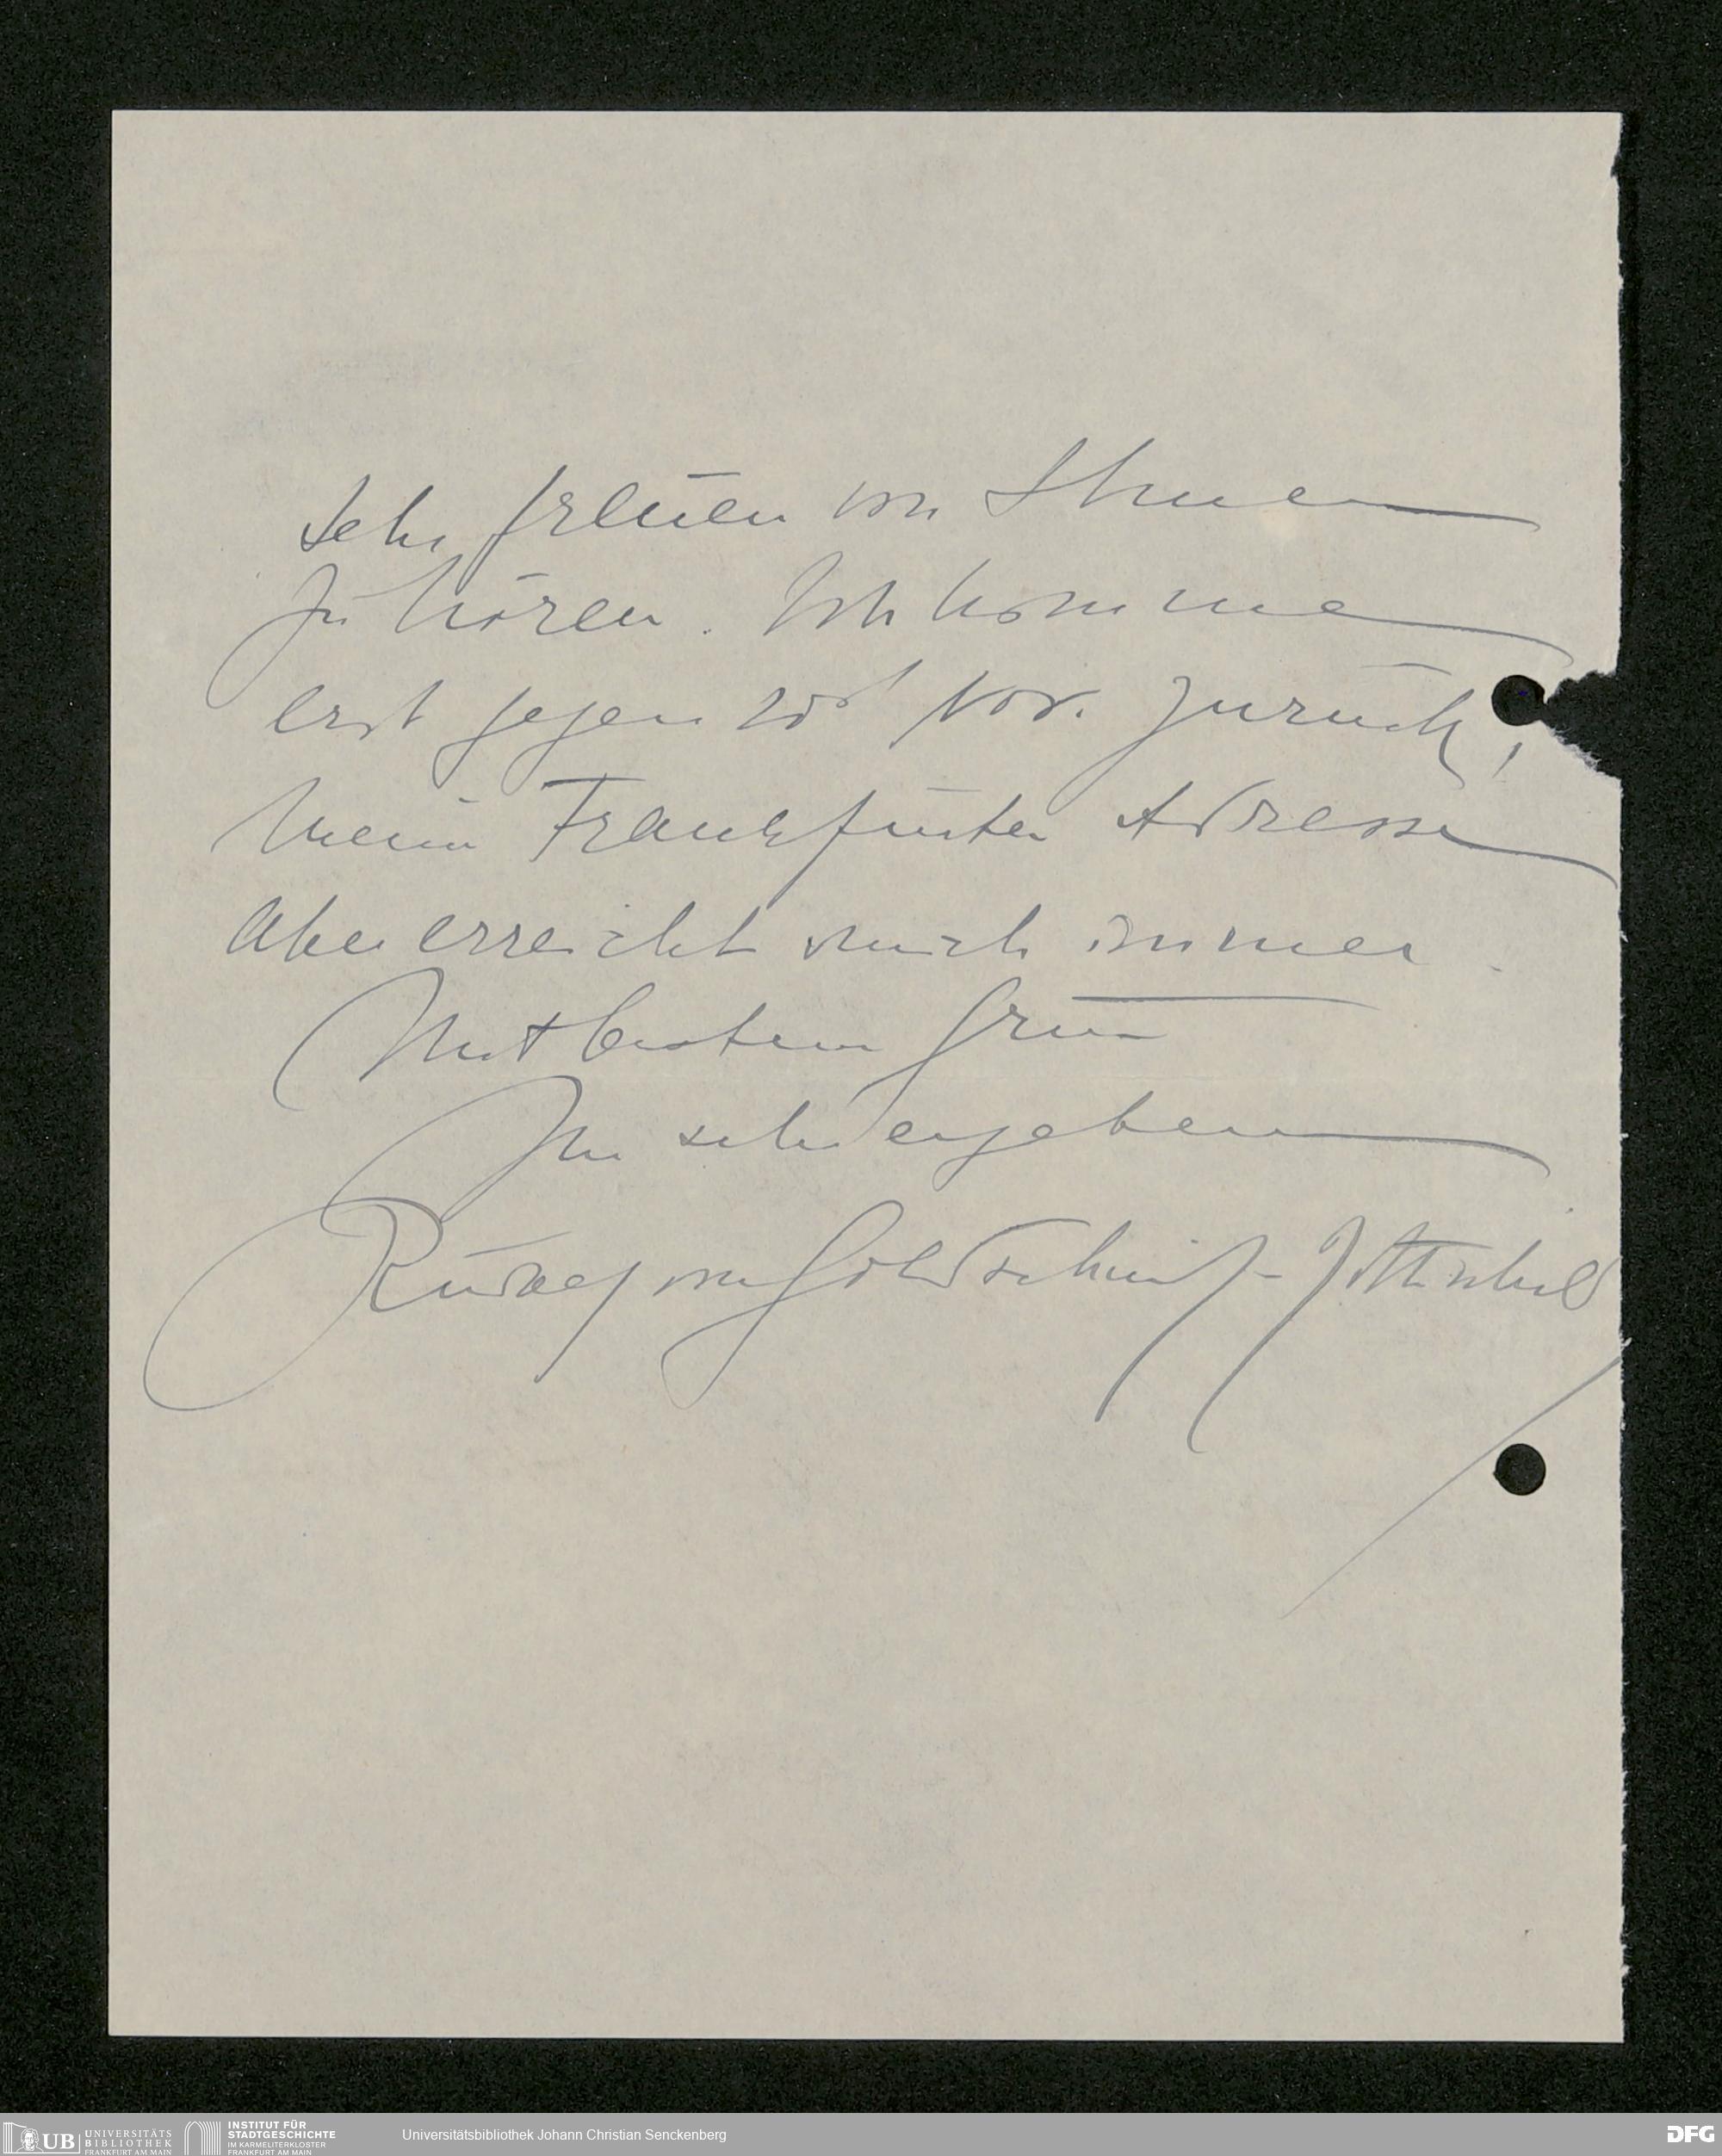 sehr freuen von Ihnen
zu hören. Ich komme
erst gegen 20st Nov. zurück,
meine Frankfurter Adresse
aber erreicht mich immer.
Mit bestem Gruss
Ihr sehr ergebener
Rudolf von Goldschmidt-Rothschild
UB UNIVERSITÄTS BIBLIOTHEK FRANKFURT AM MAIN
INSTITUT FÜR STADTGESCHICHTE IM KARMELITERKLOSTER FRANKFURT AM MAIN
Universitätsbibliothek Johann Christian Senckenberg
DFG